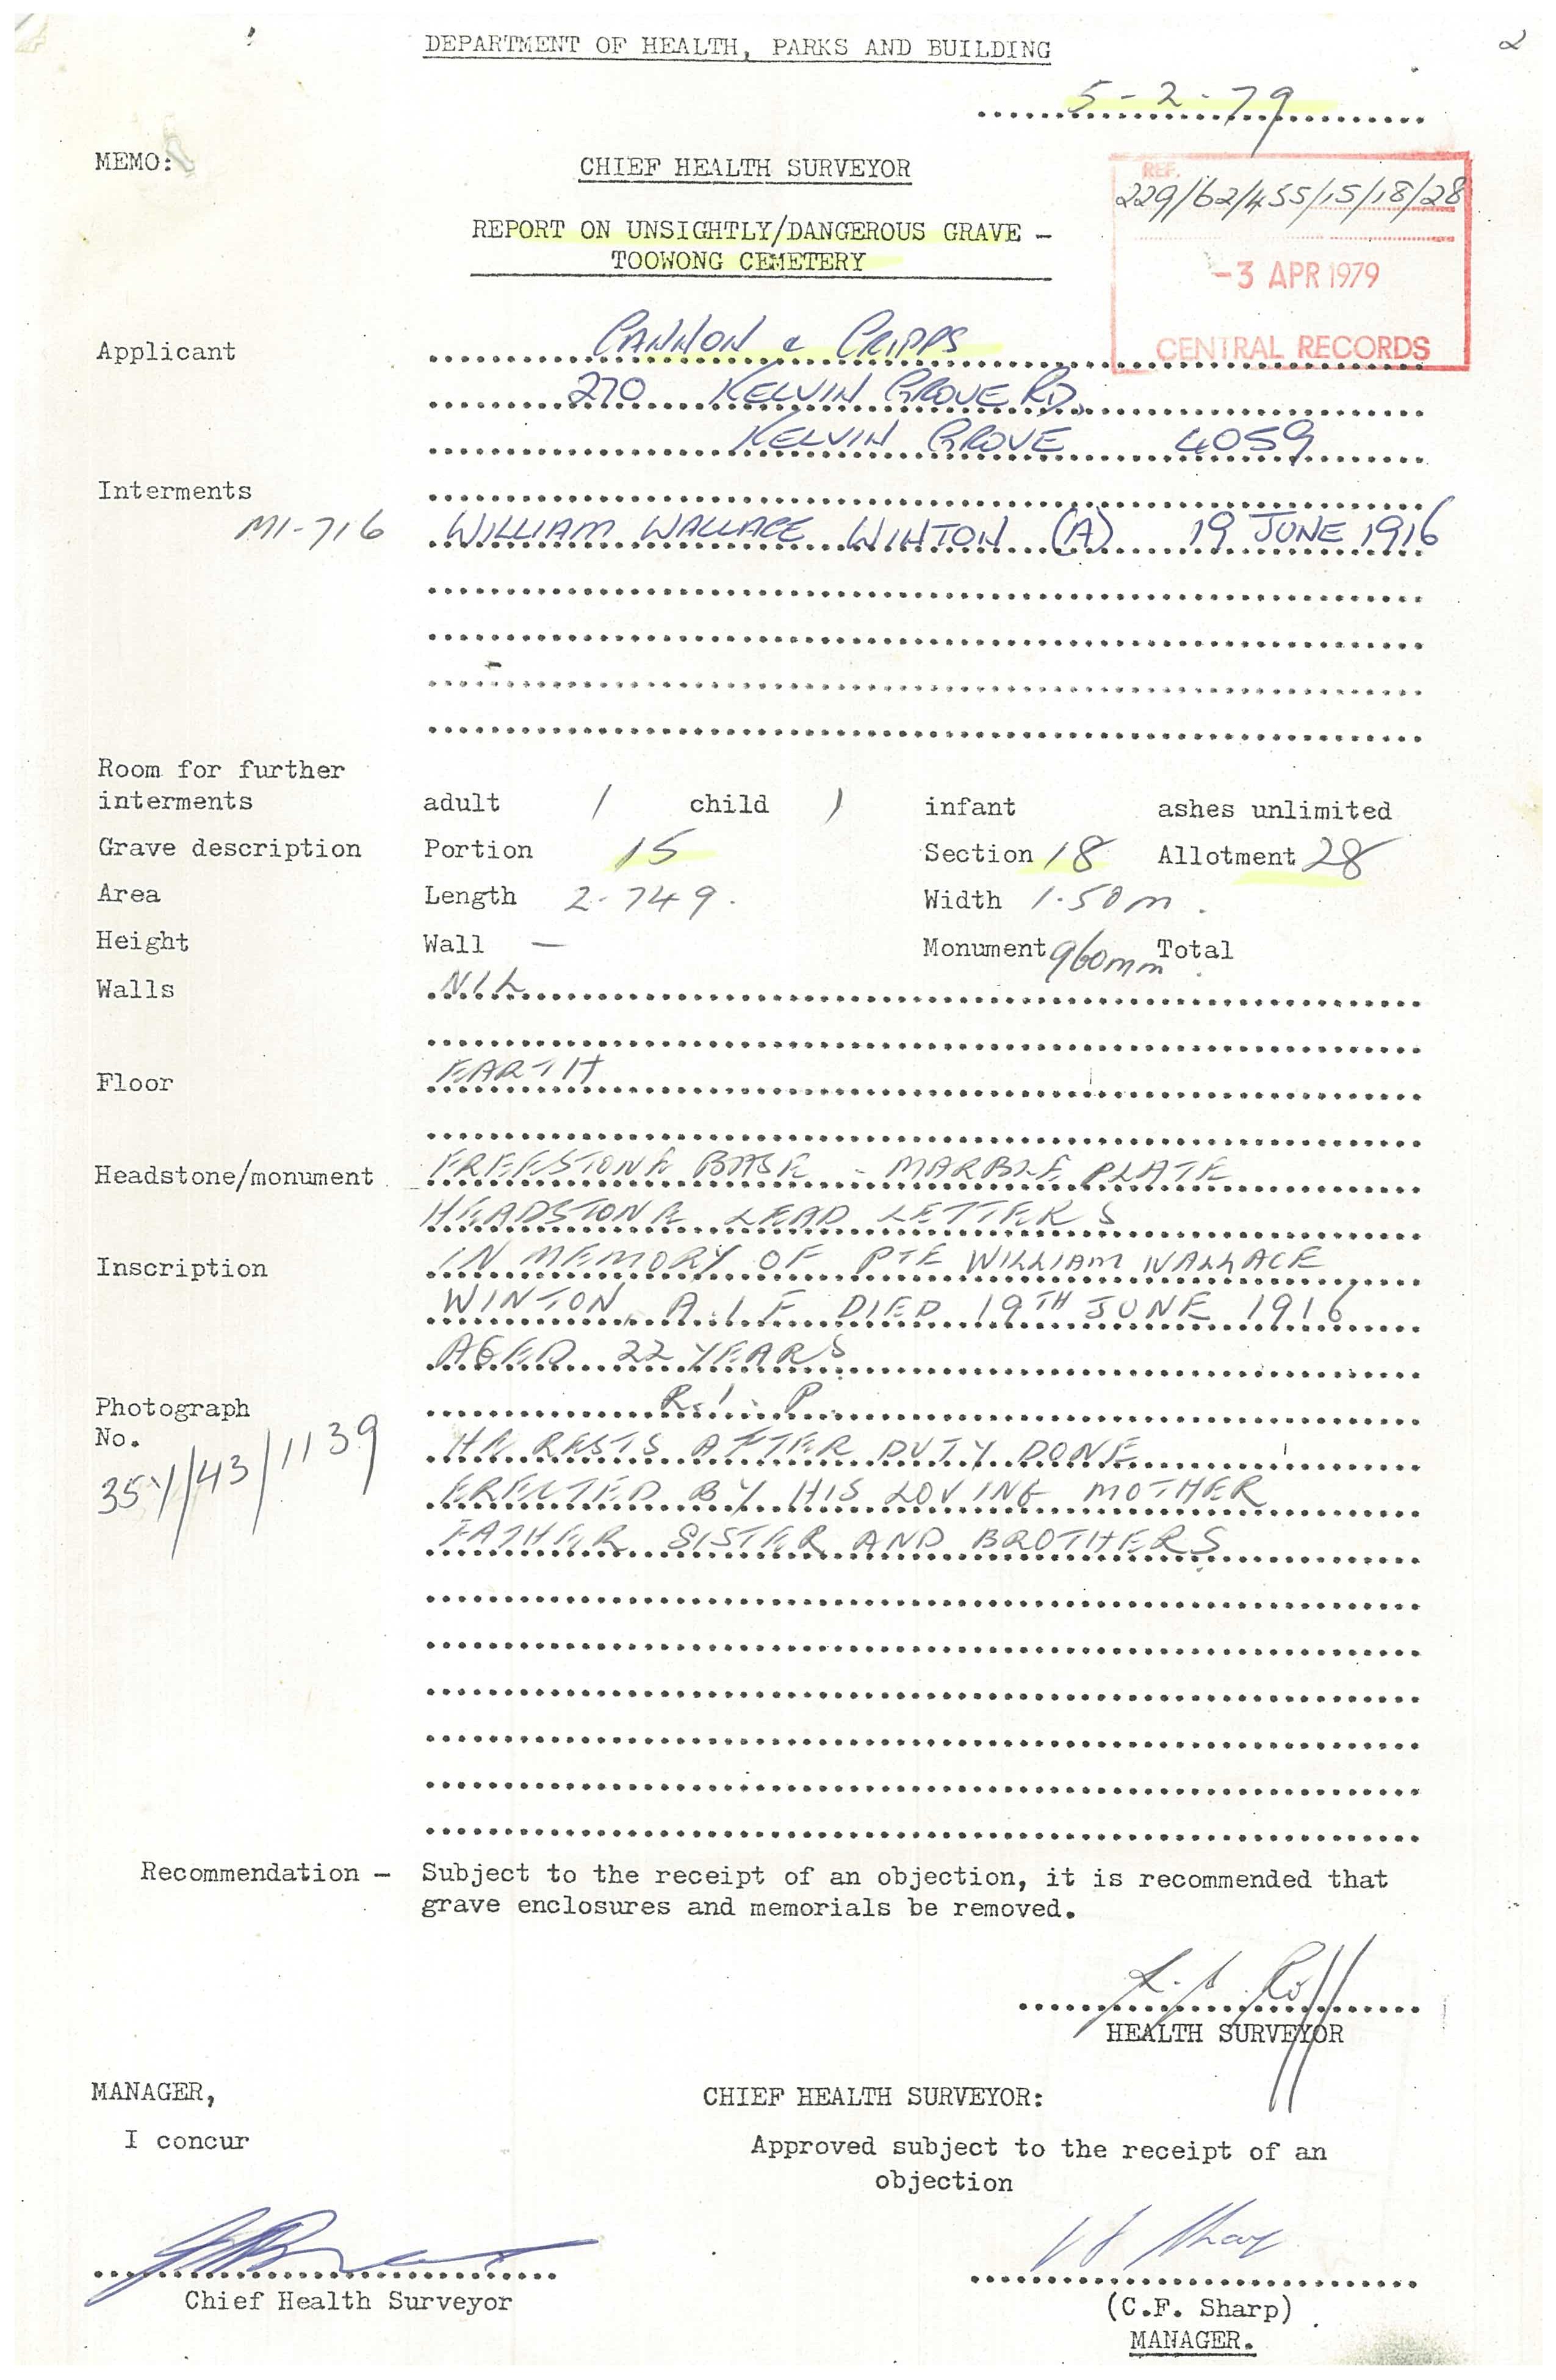 2
DEPARTMENT OF HEALTH, PARKS AND BUILDING
5-2-79
MEMO:
CHIEF HEALTH SURVEYOR
REF.
229/62/455/15/18/28
REPORT ON UNSIGHTLY/DANGEROUS GRAVE -
TOOWONG CEMETERY
-3 APR 1979
CENTRAL RECORDS
Applicant CANNON & CRIPPS
270 KELVIN GROVE RD,
KELVIN GROVE 4059
Interments
M1-716 WILLIAM WALLACE WINTON (A) 19 JUNE 1916
Room for further
interments adult / child ) infant ashes unlimited
Grave description Portion 15 Section 18 Allotment 28
Area Length 2.749. Width 1.50m.
Height Wall — Monument 960mm Total
Walls NIL
Floor EARTH
Headstone/monument FREESTONE BASE - MARBLE PLATE
HEADSTONE LEAD LETTERS
Inscription IN MEMORY OF PTE WILLIAM WALLACE
WINTON A.I.F DIED 19TH JUNE 1916
AGED 22 YEARS
Photograph R.I.P.
No. HE RESTS AFTER DUTY DONE
/43/1139 ERECTED BY HIS LOVING MOTHER
FATHER SISTER AND BROTHERS
Recommendation - Subject to the receipt of an objection, it is recommended that
grave enclosures and memorials be removed.
HEALTH SURVEYOR
MANAGER, CHIEF HEALTH SURVEYOR:
I concur Approved subject to the receipt of an
objection
Sharp
Chief Health Surveyor (C.F. Sharp)
MANAGER.